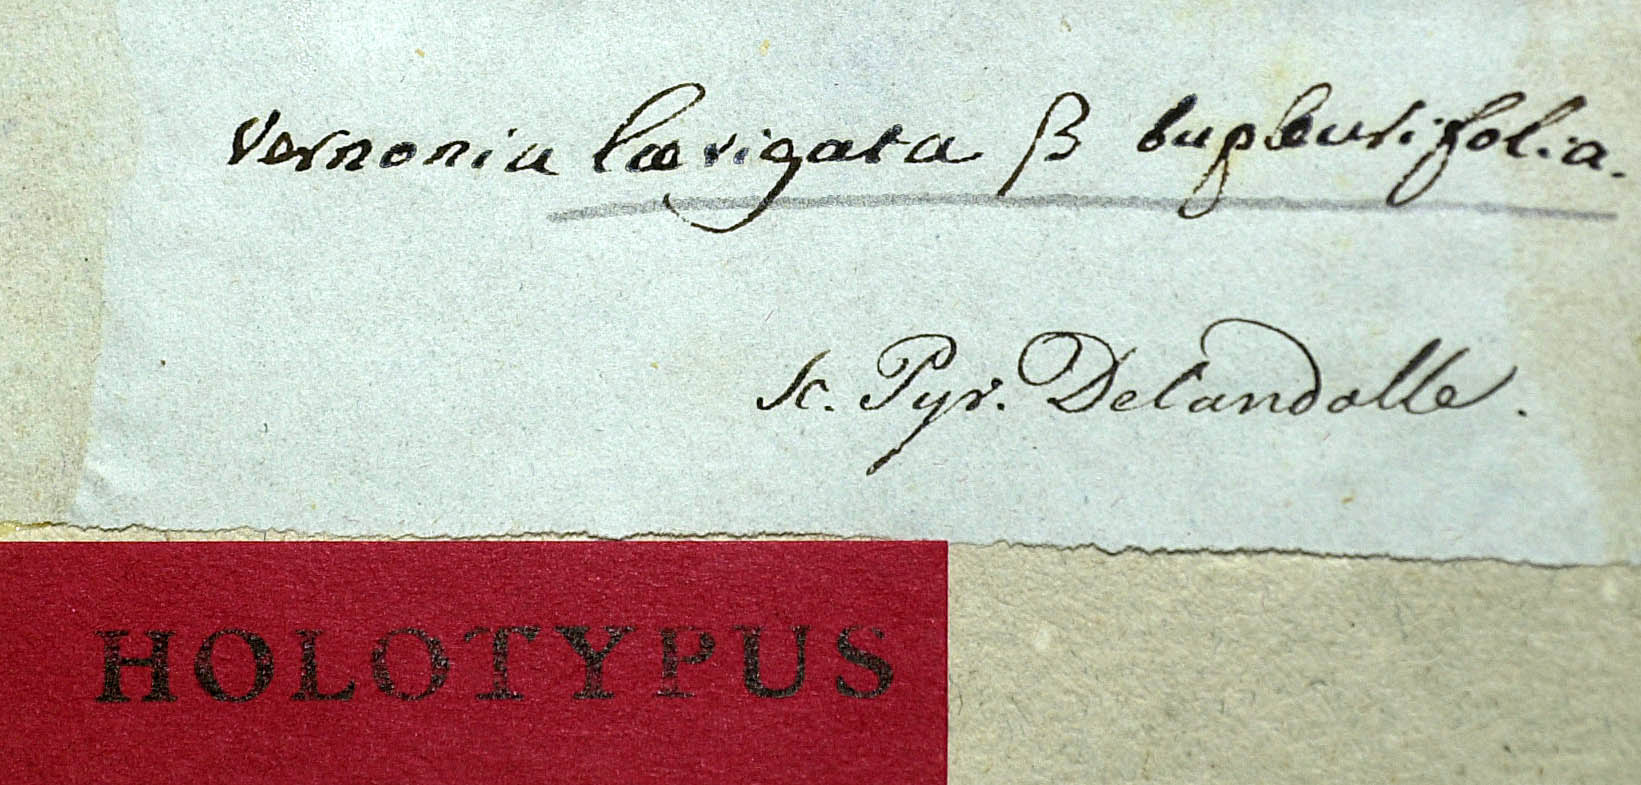 Vernonia lævigata β bupleurifolia.
sc. Pyr. Decandolle.
HOLOTYPUS